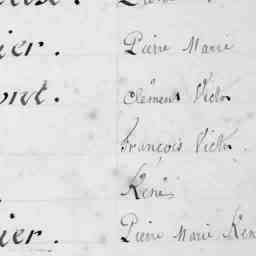 ier. Pierre Marie
oret. Clément Victor
François Victor
René
ier. Pierre Marie Ren